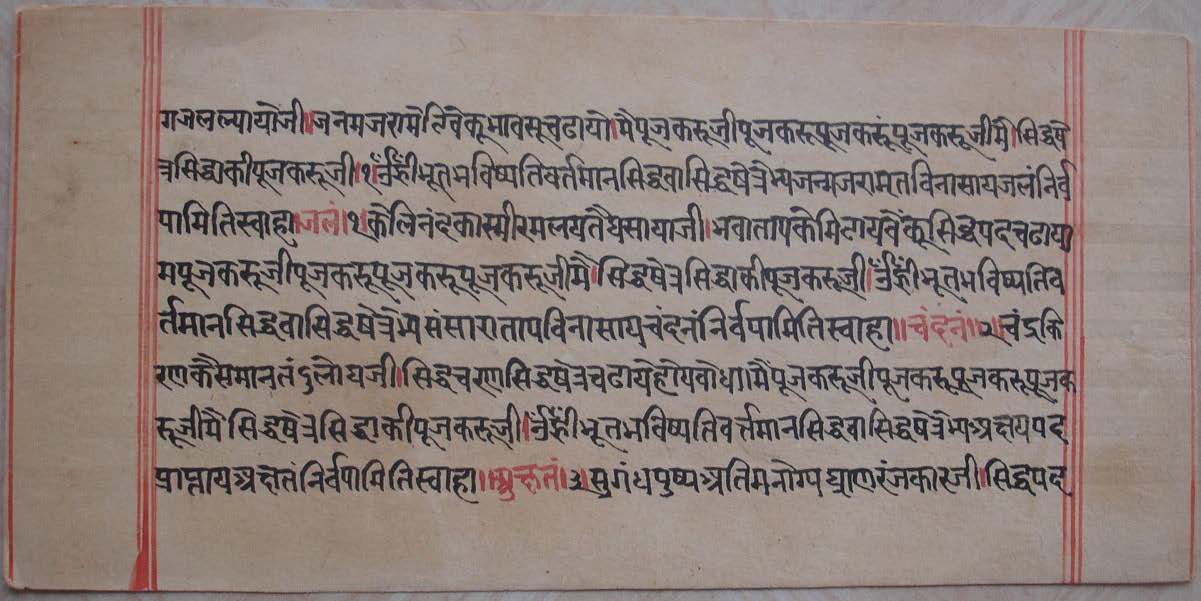 गजलल्यायोजी।जनमजरामेटिवेकूभावसूचढायो।मैपूजकरूजीपूजकरूपूजकरूंपूजकरूजीमै।सिद्धषे
त्रसिद्धाकीपूजकरूजी।१ॐह्रींभूतभविष्यतिवर्तमानसिद्धवासिद्धषेत्रेभ्यजन्मजरामृतविनासायजलंनिर्व
पामितिस्वाहा।जलं।१।केलिनंदकास्मीरमलयतैघसायाजी।भवातापकेमिटायवेंकूसिद्धपदचढाया
मपूजकरूजीपूजकरूपूजकरूपूजकरूजीमै।सिद्धषेत्रसिद्धाकीपूजकरूजी।ॐह्रींभूतभविष्यतिव
र्तमानसिद्धवासिद्धषेत्रेभ्यसंसारातापविनासायचंदनंनिर्वपामितिस्वाहा॥चंदनं॥२।चंद्रकि
रणकैसमानतंदुलोघजी।सिद्धचरणसिद्धषेत्रचढायेहोयबोधा।मैंपूजकरूजीपूजकरूपूजकरूपूजक
रूजीमै।सिद्धषेत्रसिद्धाकीपूजकरूजी।ॐह्रींभूतभविष्यतिवर्त्तमानसिद्धवासिद्धषेत्रेभ्यअक्षयपद
प्राप्तायअक्षेतंनिर्वपामितिस्वाहा॥अक्षतं।३।सुगंधपुष्पअतिमनोग्यघ्राणरंजकारजी।सिद्धपद